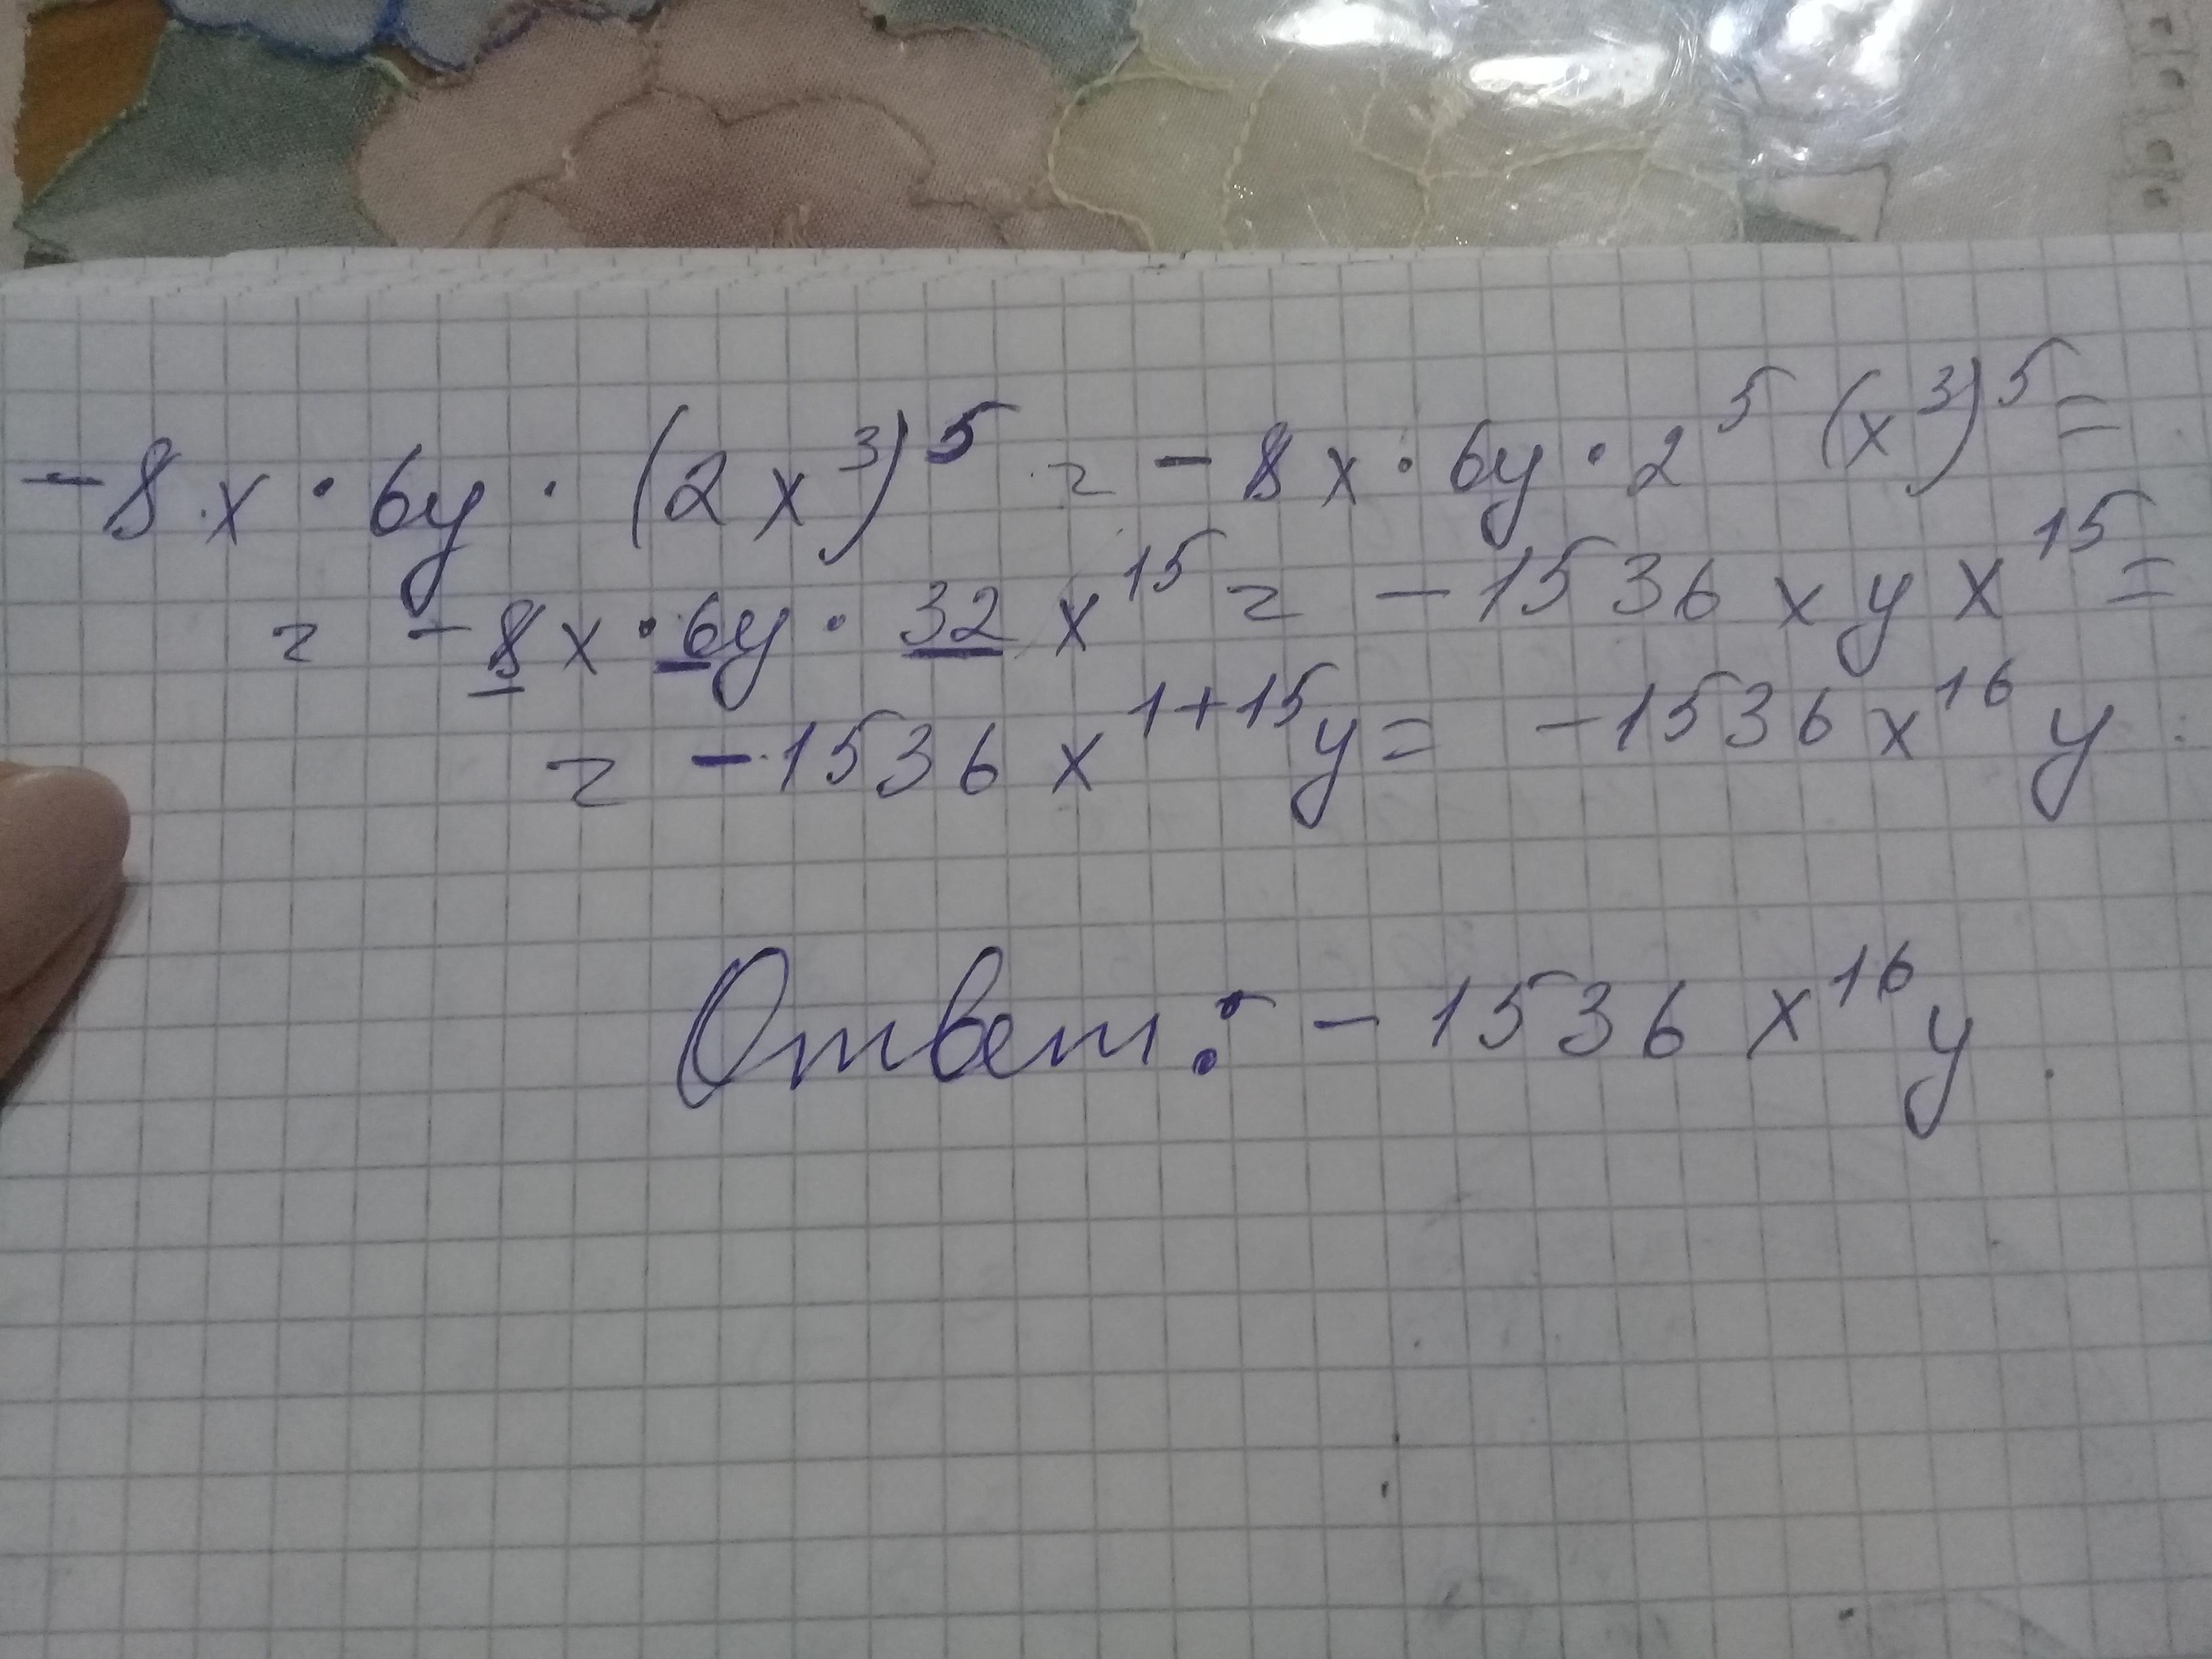 -8x · 6y · (2x³)⁵ = -8x · 6y · 2⁵ (x³)⁵ =
= -8x · 6y · 32 x¹⁵ = -1536 x y x¹⁵ =
= -1536 x¹⁺¹⁵ y = -1536 x¹⁶ y
Ответ: -1536 x¹⁶ y.